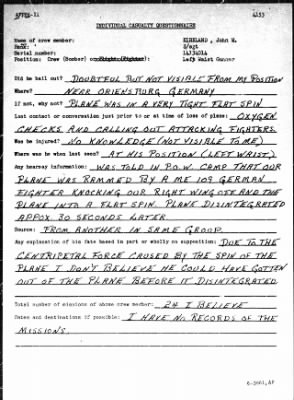 AFPPA-11
INDIVIDUAL CASUALTY QUESTIONNAIRE
Name of crew member: KIRKLAND, John W.
Rank: S/sgt
Serial number: 14134014
Position: Crew (Bomber) Left Waist Gunner
Did he bail out? DOUBTFUL BUT NOT VISIBLE FROM MY POSITION
Where? NEAR ORIENSBURG GERMANY
If not, why not? PLANE WAS IN A VERY TIGHT FLAT SPIN
Last contact or conversation just prior to or at time of loss of plane: OXYGEN
CHECKS AND CALLING OUT ATTACKING FIGHTERS
Was he injured? NO KNOWLEDGE (NOT VISIBLE TO ME)
Where was he when last seen? AT HIS POSITION (LEFT WAIST)
Any hearsay information: WAS TOLD IN P.O.W. CAMP THAT OUR
PLANE WAS RAMMED BY A ME 109 GERMAN
FIGHTER KNOCKING OUR RIGHT WING OFF AND THE
PLANE INTO A FLAT SPIN. PLANE DISINTEGRATED
APPOX. 30 SECONDS LATER
Source: FROM ANOTHER IN SAME GROUP
Any explanation of his fate based in part or wholly on supposition: DUE TO THE
CENTRIPETAL FORCE CAUSED BY THE SPIN OF THE
PLANE I DON'T BELIEVE HE COULD HAVE GOTTEN
OUT OF THE PLANE BEFORE IT DISINTEGRATED
Total number of missions of above crew member: 24 I BELIEVE
Dates and destinations if possible: I HAVE NO RECORDS OF THE
MISSIONS
6-3861,AF